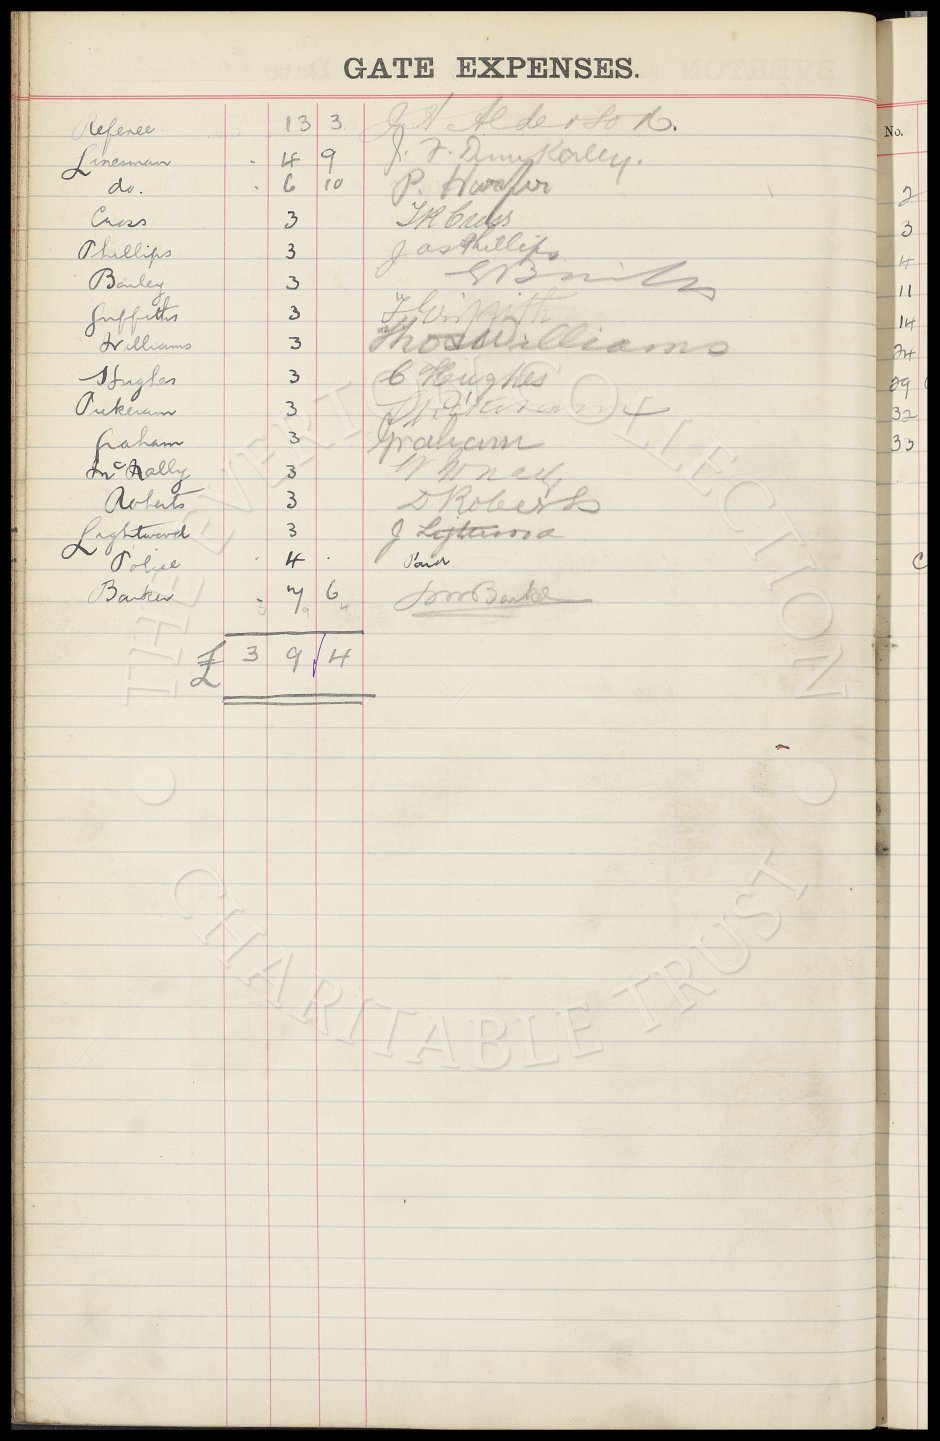 GATE EXPENSES.
Referee 13 3 J H Alderson.
Linesman - 4 9 J. T.
do. - 6 10 P. Harper
Cross 3 T R Cross
Phillips 3 Jas Phillips
Bailey 3
Griffiths 3 T Griffith
Williams 3 Thos Williams
Hughes 3 C Hughes
Pickeram 3
Graham 3 Graham
McNally 3 McNally
Roberts 3 D Roberts
Lightwood 3 J
Police - 4 - Paid
Barker - 7 6 Barker
3 9 4
£ 3 9 4
No.
2
3
4
11
14
24
29
32
33
THE EVERTON COLLECTION
CHARITABLE TRUST